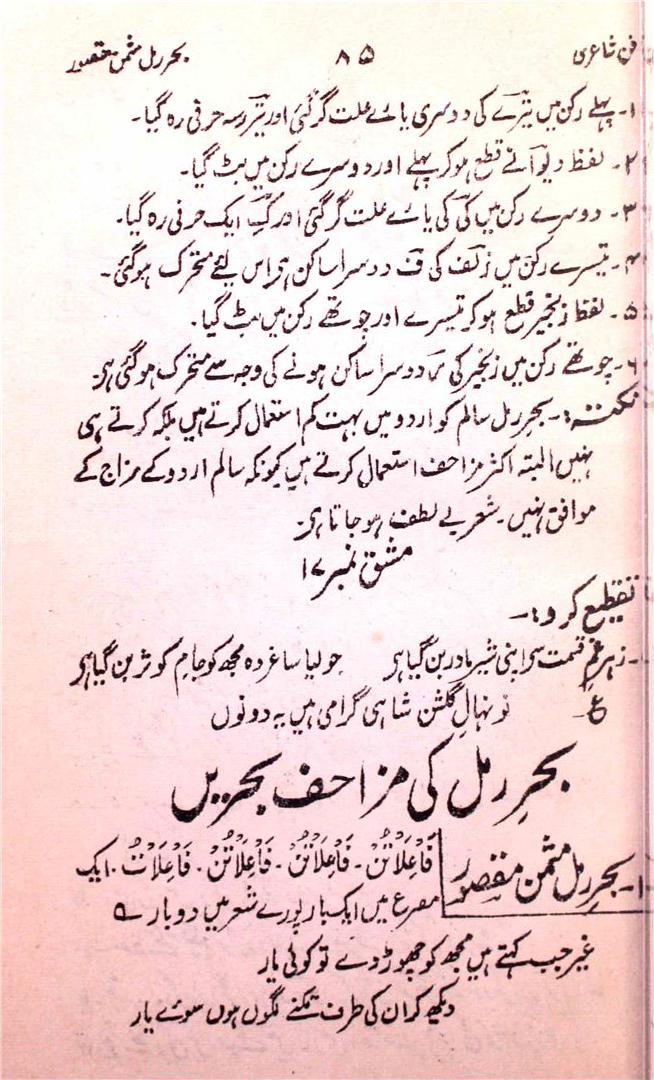 فن شاعری ۸۵ بحر رمل مثمن مقصور
۱- پہلے رکن میں تیرے کی دوسری یائے علت گر گئی اور تیر سہ حرفی رہ گیا۔
۲- لفظ دیوانے قطع ہو کر پہلے اور دوسرے رکن میں بٹ گیا۔
۳- دوسرے رکن میں کی کی یائے علت گر گئی اور کِ ایک حرفی رہ گیا۔
۴- تیسرے رکن میں زلف کی ف دوسرا ساکن ہے اس لئے متحرک ہو گئی۔
۵- لفظ زنجیر قطع ہو کر تیسرے اور چوتھے رکن میں بٹ گیا۔
۶- چوتھے رکن میں زنجیر کی ر دوسرا ساکن ہونے کی وجہ سے متحرک ہو گئی ہے۔
نکتہ:- بحر رمل سالم کو اردو میں بہت کم استعمال کرتے ہیں بلکہ کرتے ہی
نہیں البتہ اکثر مزاحف استعمال کرتے ہیں کیونکہ سالم اردو کے مزاج کے
موافق نہیں۔ شعر بے لطف ہو جاتا ہے۔
مشق نمبر ۱۷
تقطیع کرو:-
زہر غم قسمت سے اپنی شیر مادر بن گیا ہے جو لیا ساغر وہ مجھ کو جام کوثر بن گیا ہے
ع- نو نہالِ گلشن شاہی گرامی ہیں یہ دونوں
بحرِ رمل کی مزاحف بحریں
۱- بحرِ رمل مثمن مقصور فَاعِلَاتُنْ- فَاعِلَاتُنْ- فَاعِلَاتُنْ- فَاعِلَاتُ- ایک
مصرع میں ایک بار پورے شعر میں دو بار ے
غیر جب کہتے ہیں مجھ کو چھوڑ دے تو کوئی یار
دیکھ کر ان کی طرف تکنے لگوں ہوں سوئے یار